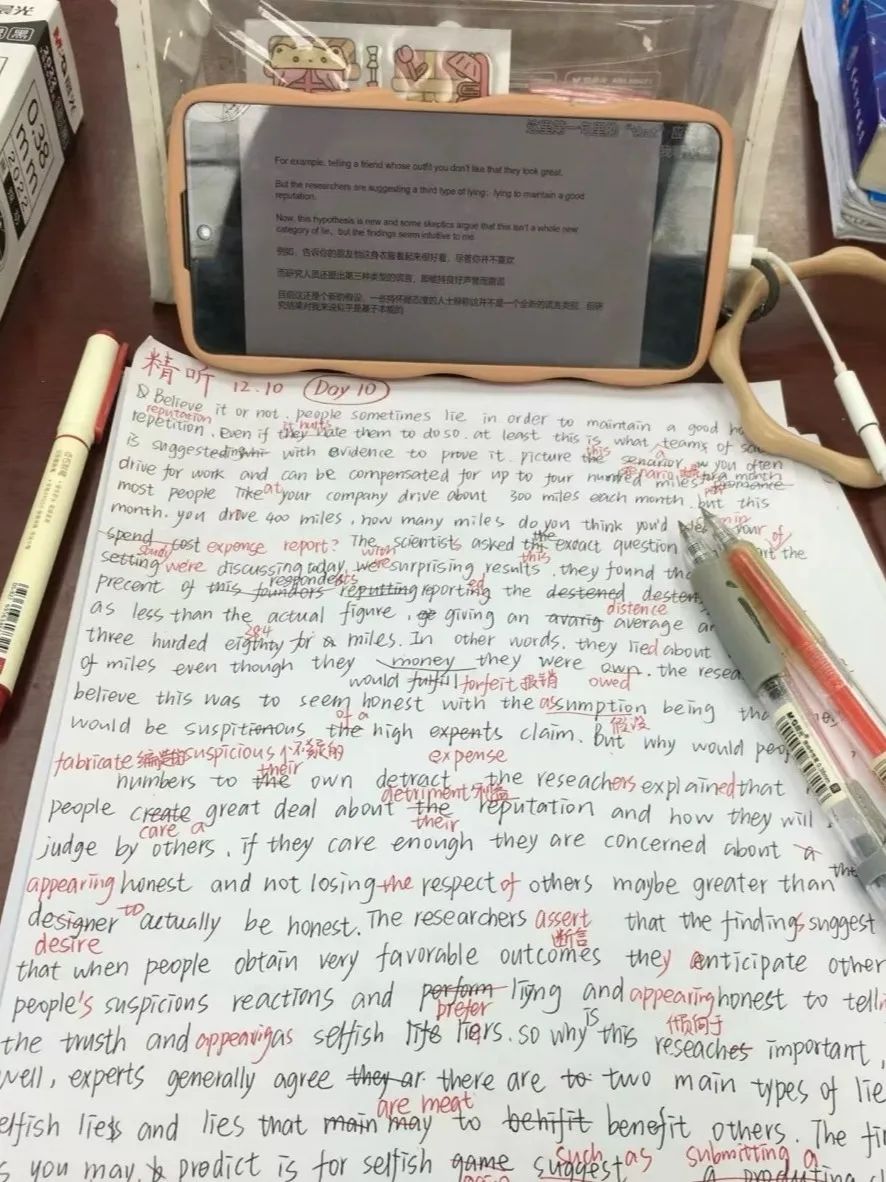 0.38
mm
For example, telling a friend whose outfit you don't like that they look great.
But the researchers are suggesting a third type of lying: lying to maintain a good
reputation.
Now, this hypothesis is new and some skeptics argue that this isn't a whole new
category of lie, but the findings seem intuitive to me.
例如，告诉你的朋友他这身衣服看起来很好看，尽管你并不喜欢
而研究人员还提出第三种类型的谎言，即维持良好声誉而撒谎
目前这还是个新的假设，一些持怀疑态度的人士辩称这并不是一个全新的谎言类别，但研
究结果对我来说似乎是基于本能的
精听 12.10 Day 10
Believe it or not, people sometimes lie in order to maintain a good
reputation it hurts
repetition. Even if they hate them to do so. at least this is what a teams of
is suggested with evidence to prove it. picture the this senarior you often
drive for work and can be compensated for up to four hundred miles a month
most people like at your company drive about 300 miles each month. but this
month. you drive 400 miles, how many miles do you think you'd
spend cost expense report? The scientists asked the exact question your of
setting study were discussing today, with were surprising results. this they found
precent of this founders respondents reputting reporting ed the destened
as less than the actual figure, giving an avarig average distence
three hurded eigthty 384 for a miles. In other words, they lied about
of miles even though they money they were own. the
would fulfill forfeit 报销 owed
believe this was to seem honest with the assumption being
would be suspitionous the of a high expents claim. But 假设 why would
fabricate 编造 suspicious 可疑的 expense
numbers to the their own detract the reseachers explained that
people create great deal about detriment the reputation and how they will
care a their
judge by others, if they care enough they are concerned about a
appearing honest and not losing the respect of others maybe greater than the
designer to actually be honest. The researchers assert that the findings suggest
desire 断言
that when people obtain very favorable outcomes they anticipate other
people's suspicions reactions and perform liying and appearing honest to
prefer is 倾向于
the trusth and appearigas selfish life liers. so why this reseaches important,
well, experts generally agree they ar there are to two main types of lie
are meat
selfish lies and lies that main may to behifit benefit others. The
you may predict is for selfish game suggest such as submitting a